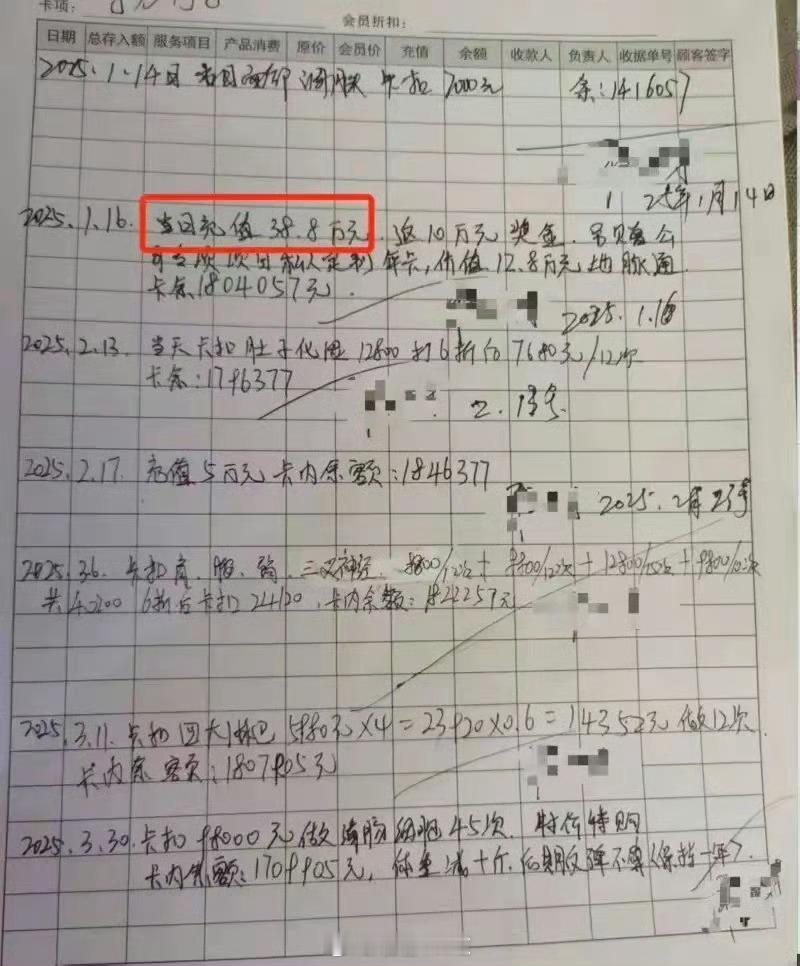 卡项:
会员折扣:
日期 总存入额 服务项目 产品消费 原价 会员价 充值 余额 收款人 负责人 收据单号 顾客签字
2025.1.14日 卡扣 7000元 余:1416057
25年1月14日
2025.1.16. 当日充值 38.8万元. 返10万元奖金.
可专项 项目私人定制年卡,价值12.8万元地脉通
卡余1804057元.
2025.1.16
2025.2.13. 当天卡扣肚子 12800 打6折后7680元/12次
卡余:1796377
2.13号.
2025.2.17. 充值5万元 卡内余额:1846377
2025.2月23号
2025.3.6. 卡扣肩、腰、三叉神经. 9800/12次+12800/10次+9800/10次
共40200 6折后卡扣24120.卡内余额:1822257元
2025.3.11. 卡扣四大淋巴 5980元×4=23920×0.6=14352元 做12次.
卡内余额:1807905元
2025.3.30.卡扣98000元做 45次. 特价特购
卡内余额:1709905元, 体重减十斤.后期反弹不算(保持一年).